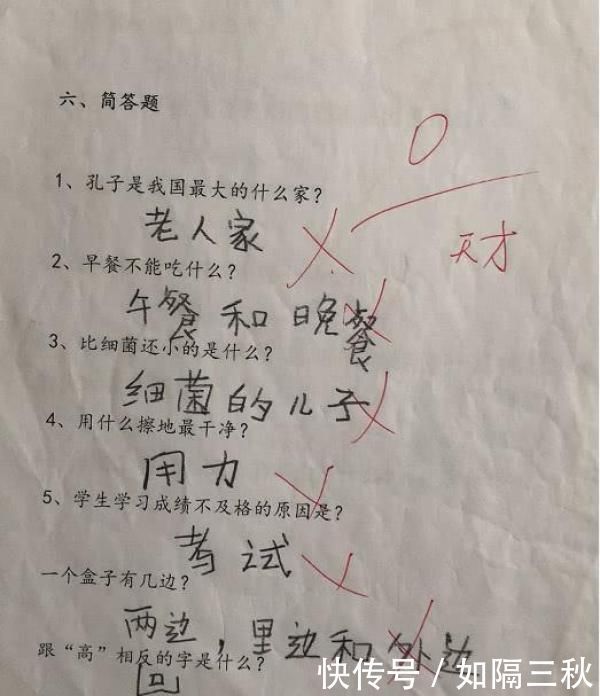 六、简答题
0
1、孔子是我国最大的什么家？
老人家
天才
2、早餐不能吃什么？
午餐和晚餐
3、比细菌还小的是什么？
细菌的儿子
4、用什么擦地最干净？
用力
5、学生学习成绩不及格的原因是？
考试
一个盒子有几边？
两边，里边和外边
跟“高”相反的字是什么？
快传号／如隔三秋